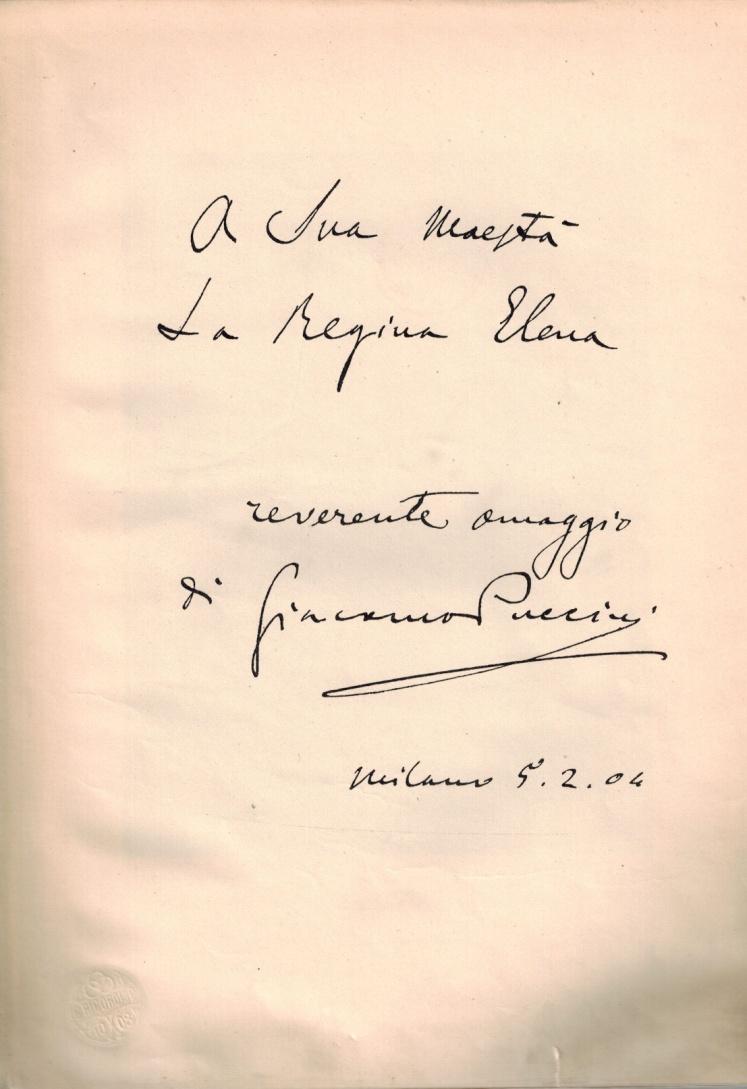 A Sua Maestà
La Regina Elena
reverente omaggio
di Giacomo Puccini
Milano 5.2.04